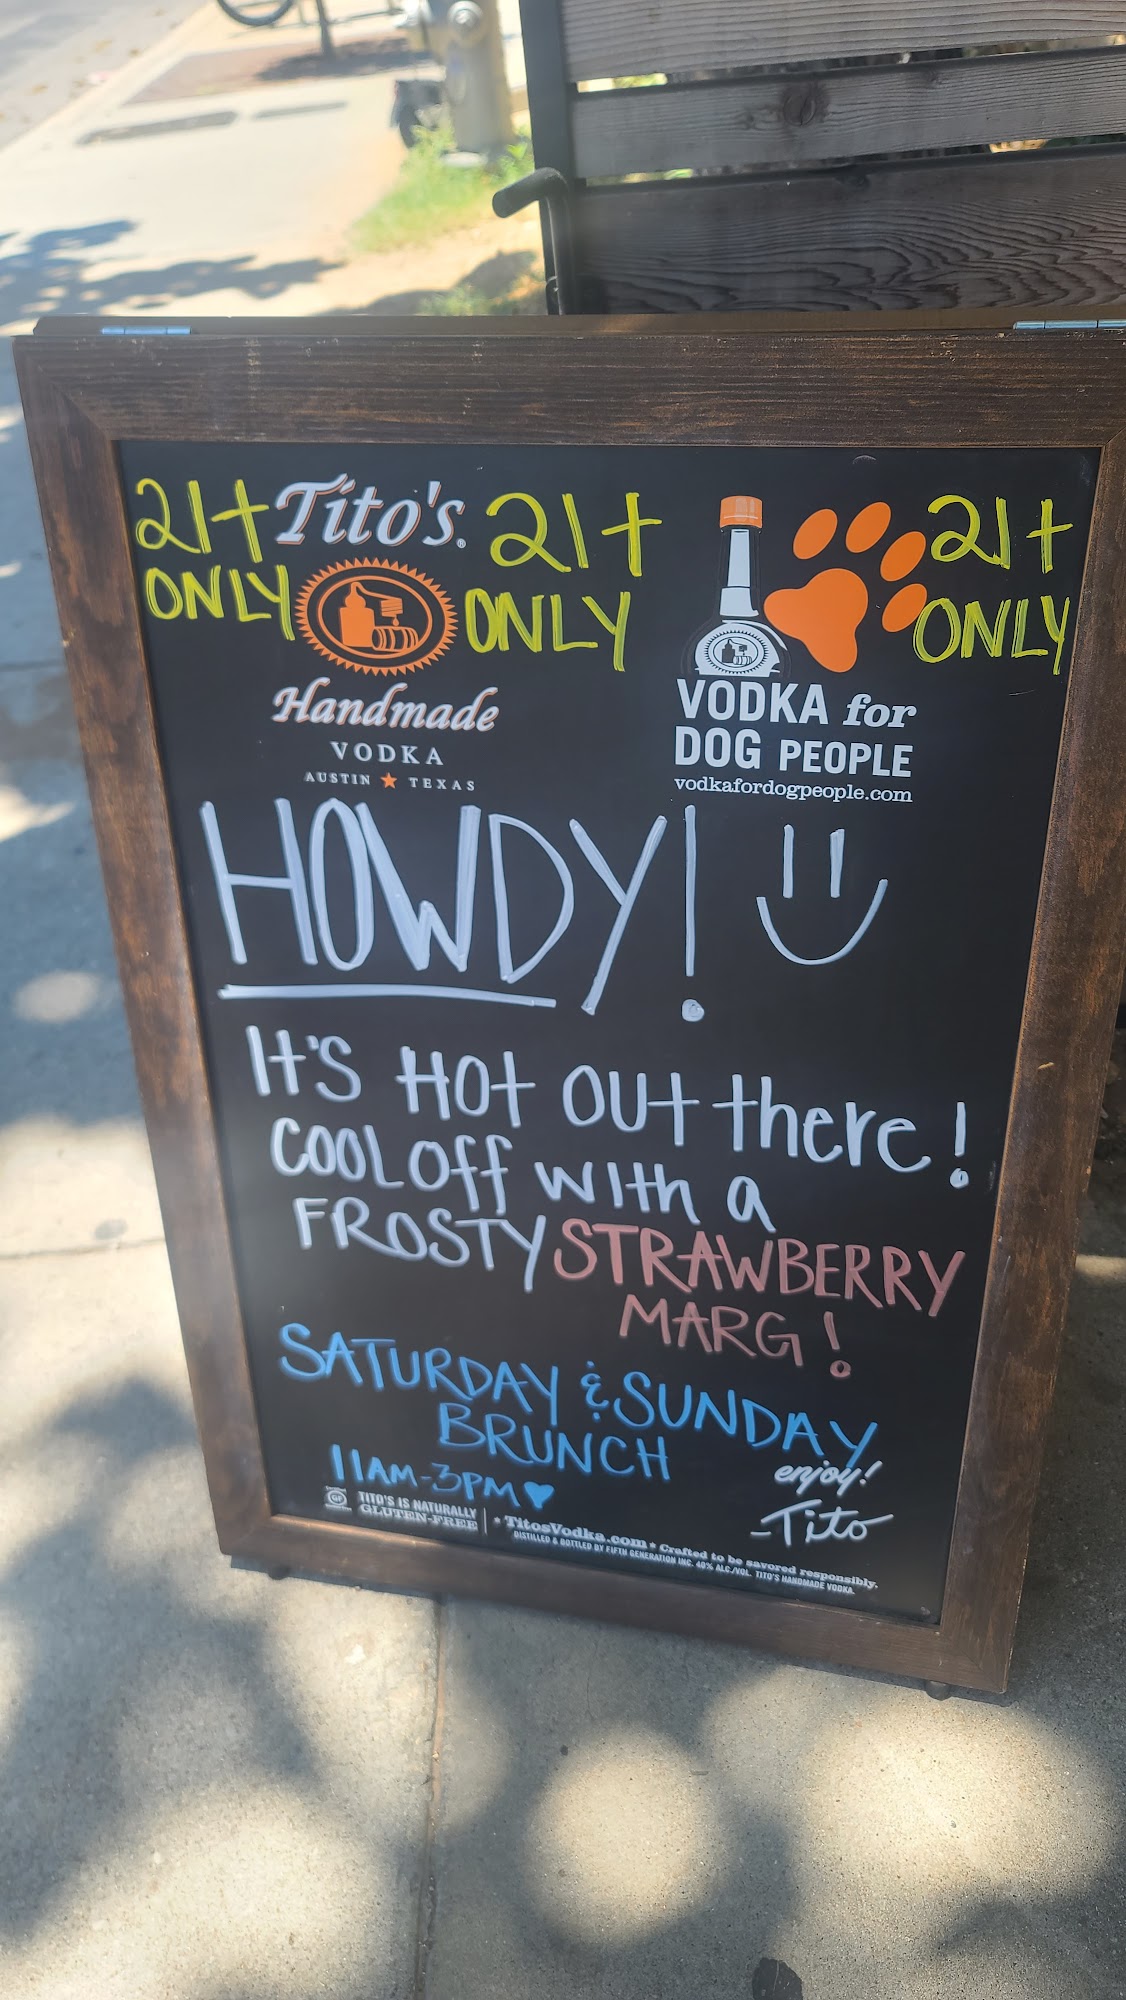 21+ Tito's. 21+ 21+
ONLY ONLY ONLY
Handmade
VODKA
AUSTIN ★ TEXAS
VODKA for
DOG PEOPLE
vodkafordogpeople.com
HOWDY!
IT'S HOT OUT there!
COOL OFF WITH a
FROSTY STRAWBERRY
MARG!
SATURDAY & SUNDAY
BRUNCH
11AM-3PM♥
enjoy!
-Tito
GF
TITO'S IS NATURALLY
GLUTEN-FREE
• TitosVodka.com • Crafted to be savored responsibly.
DISTILLED & BOTTLED BY FIFTH GENERATION INC. 40% ALC./VOL. TITO'S HANDMADE VODKA.